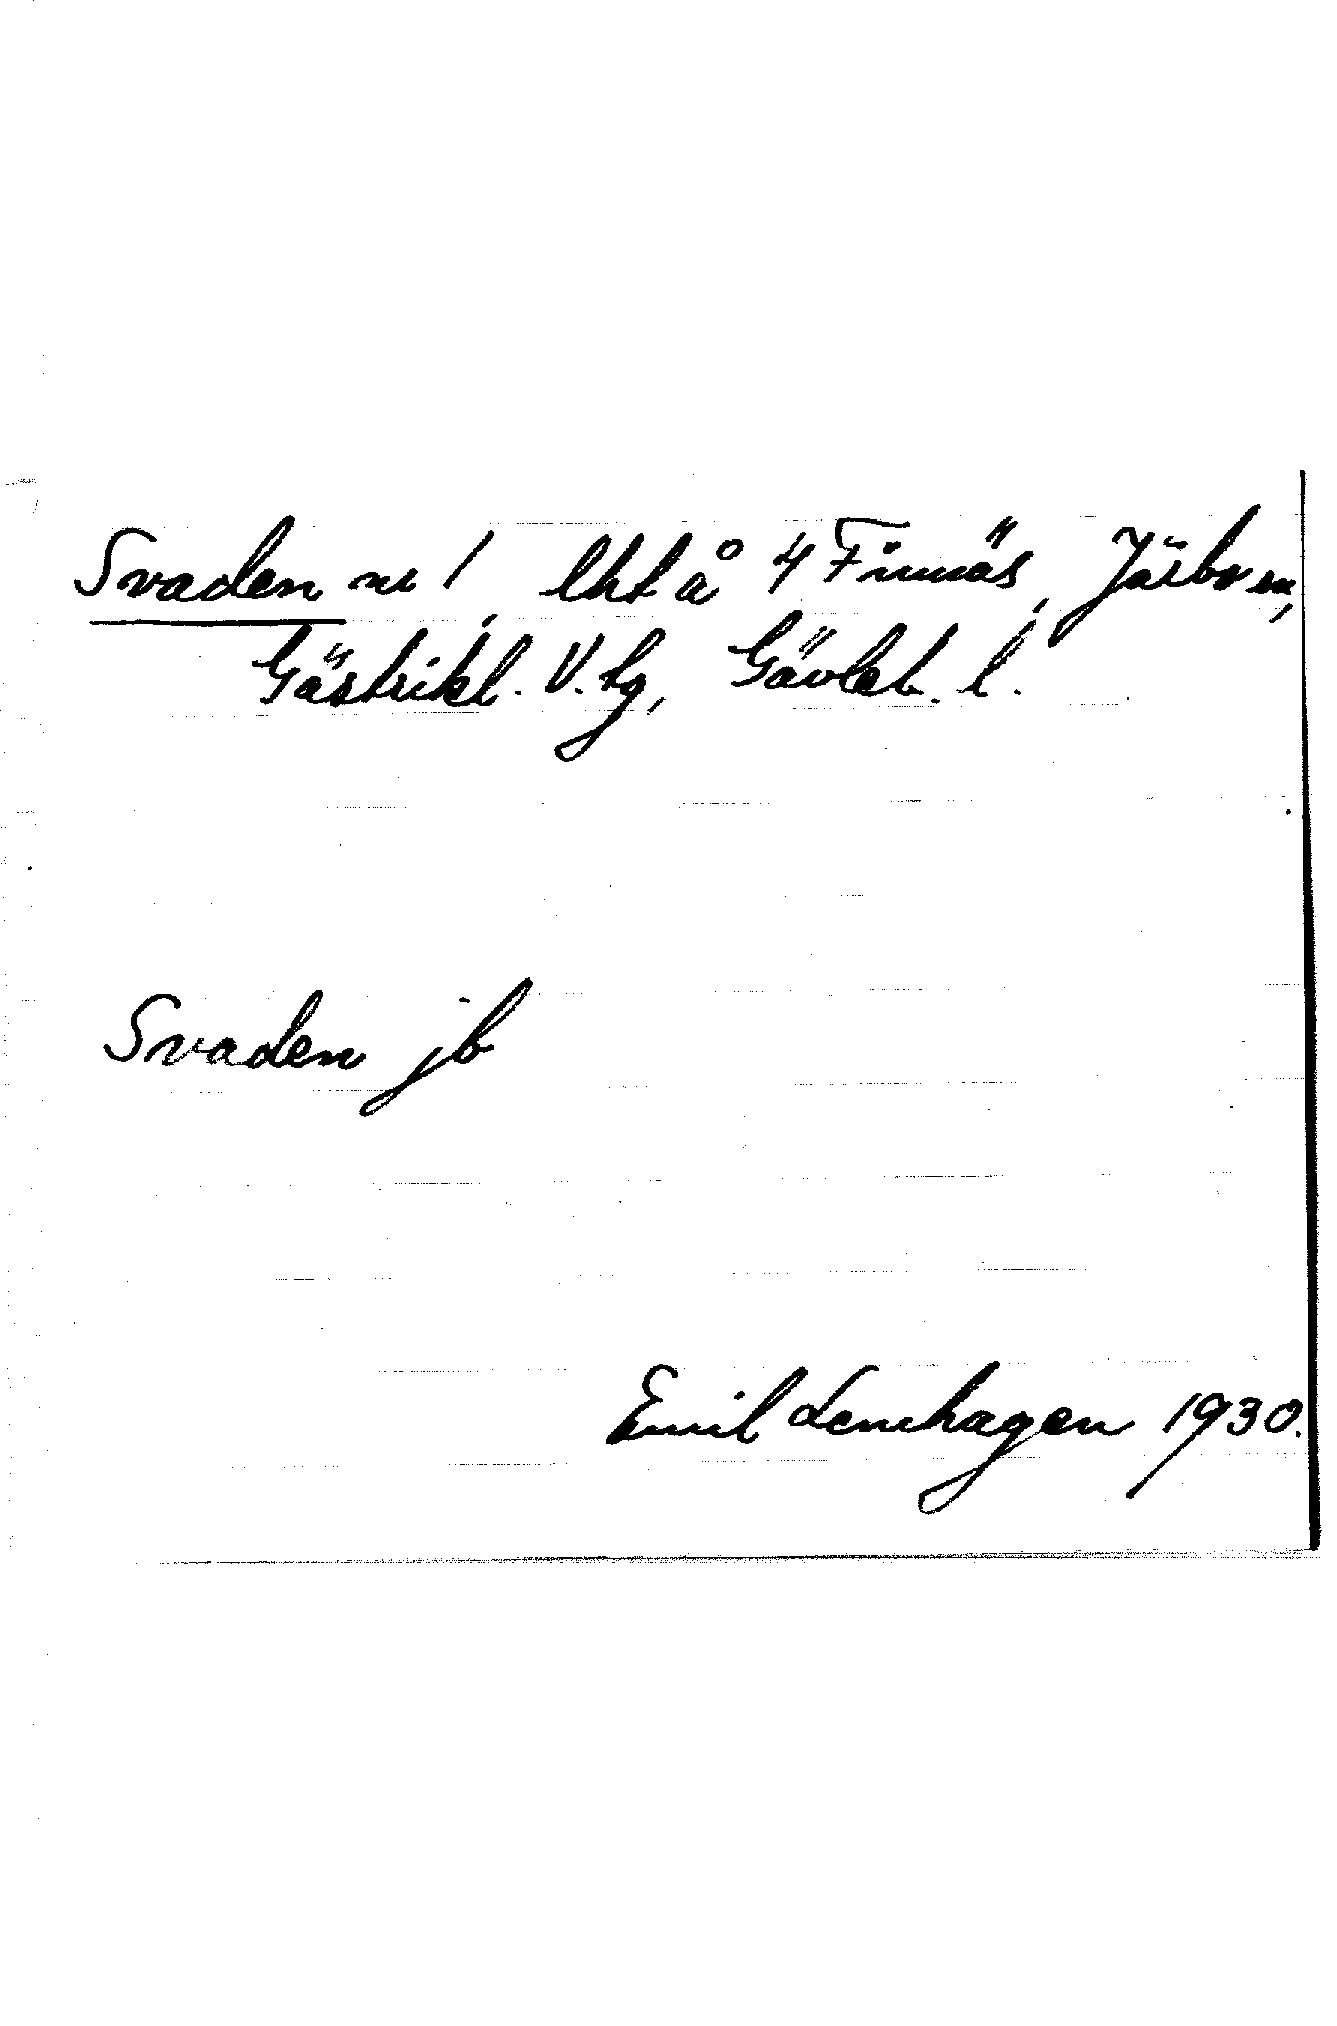 Svaden nr 1, lht å 4 Finnäs, Järbo sn,
Gästrikl. V. tg, Gävleb. l.
Svaden jb
Emil Lenhagen 1930.